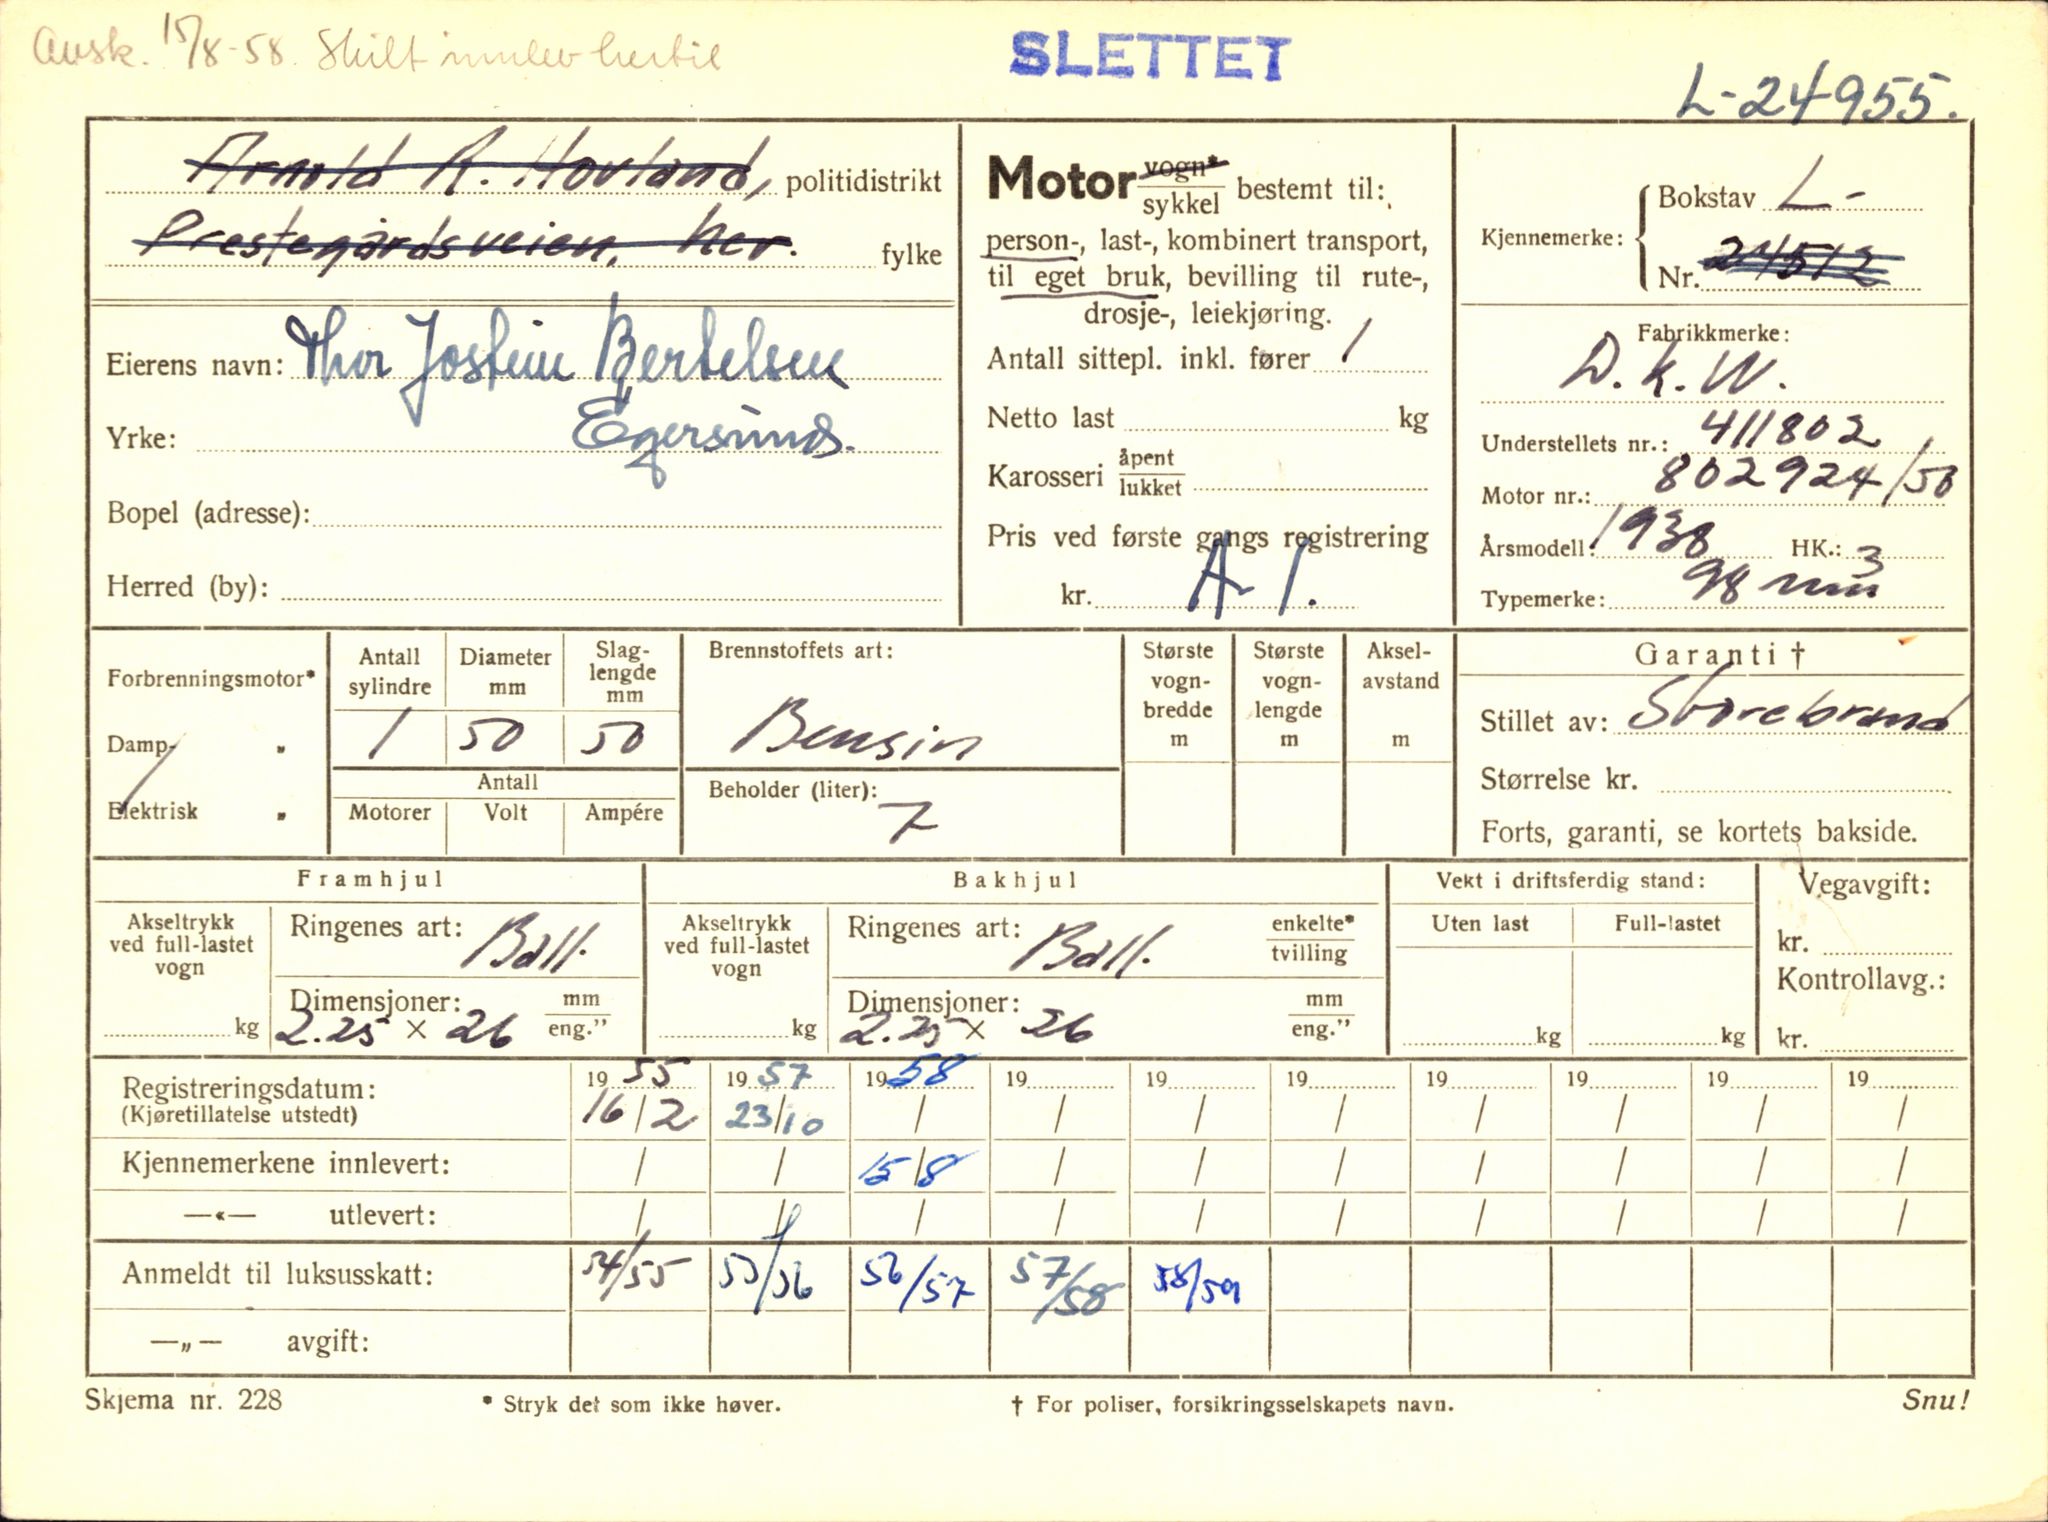 Avsk. 15/8-58. Skilt innlev hertil
SLETTET
L-24955.
Arnold R. Hovland, politidistrikt
Prestegårdsveien, her. fylke
Eierens navn: Thor Jostein Bertelsen
Yrke: Egersund.
Bopel (adresse):
Herred (by):
Motor vogn* / sykkel bestemt til:
person-, last-, kombinert transport,
til eget bruk, bevilling til rute-,
drosje-, leiekjøring.
Antall sittepl. inkl. fører 1
Netto last kg
Karosseri åpent / lukket
Pris ved første gangs registrering
kr. A 1.
Kjennemerke: Bokstav L-
Nr. 24512
Fabrikkmerke:
D.K.W.
Understellets nr.: 411802
Motor nr.: 802924/50
Årsmodell: 1938 HK.: 3
Typemerke: 98 mm
Forbrenningsmotor*
Damp- „
Elektrisk „
Antall sylindre Diameter mm Slag-lengde mm
1 50 50
Antall
Motorer Volt Ampére
Brennstoffets art:
Bensin
Beholder (liter):
7
Største vogn-bredde m
Største vogn-lengde m
Aksel-avstand m
Garanti †
Stillet av: Storebrand
Størrelse kr.
Forts, garanti, se kortets bakside.
Framhjul
Akseltrykk ved full-lastet vogn kg
Ringenes art: Ball.
Dimensjoner: mm / eng."
2.25 × 26
Bakhjul
Akseltrykk ved full-lastet vogn kg
Ringenes art: Ball. enkelte* / tvilling
Dimensjoner: mm / eng."
2.25 × 26
Vekt i driftsferdig stand:
Uten last Full-lastet
kg kg
Vegavgift:
kr.
Kontrollavg.:
kr.
Registreringsdatum: 19 55 19 57 19 58 19 19 19 19 19 19 19
(Kjøretillatelse utstedt) 16/2 23/10 / / / / / / / /
Kjennemerkene innlevert: / / 15/8 / / / / / / /
—«— utlevert: / / / / / / / / / /
Anmeldt til luksusskatt: 54/55 55/56 56/57 57/58 58/59
—„— avgift:
Skjema nr. 228 * Stryk det som ikke høver. † For poliser, forsikringsselskapets navn. Snu!